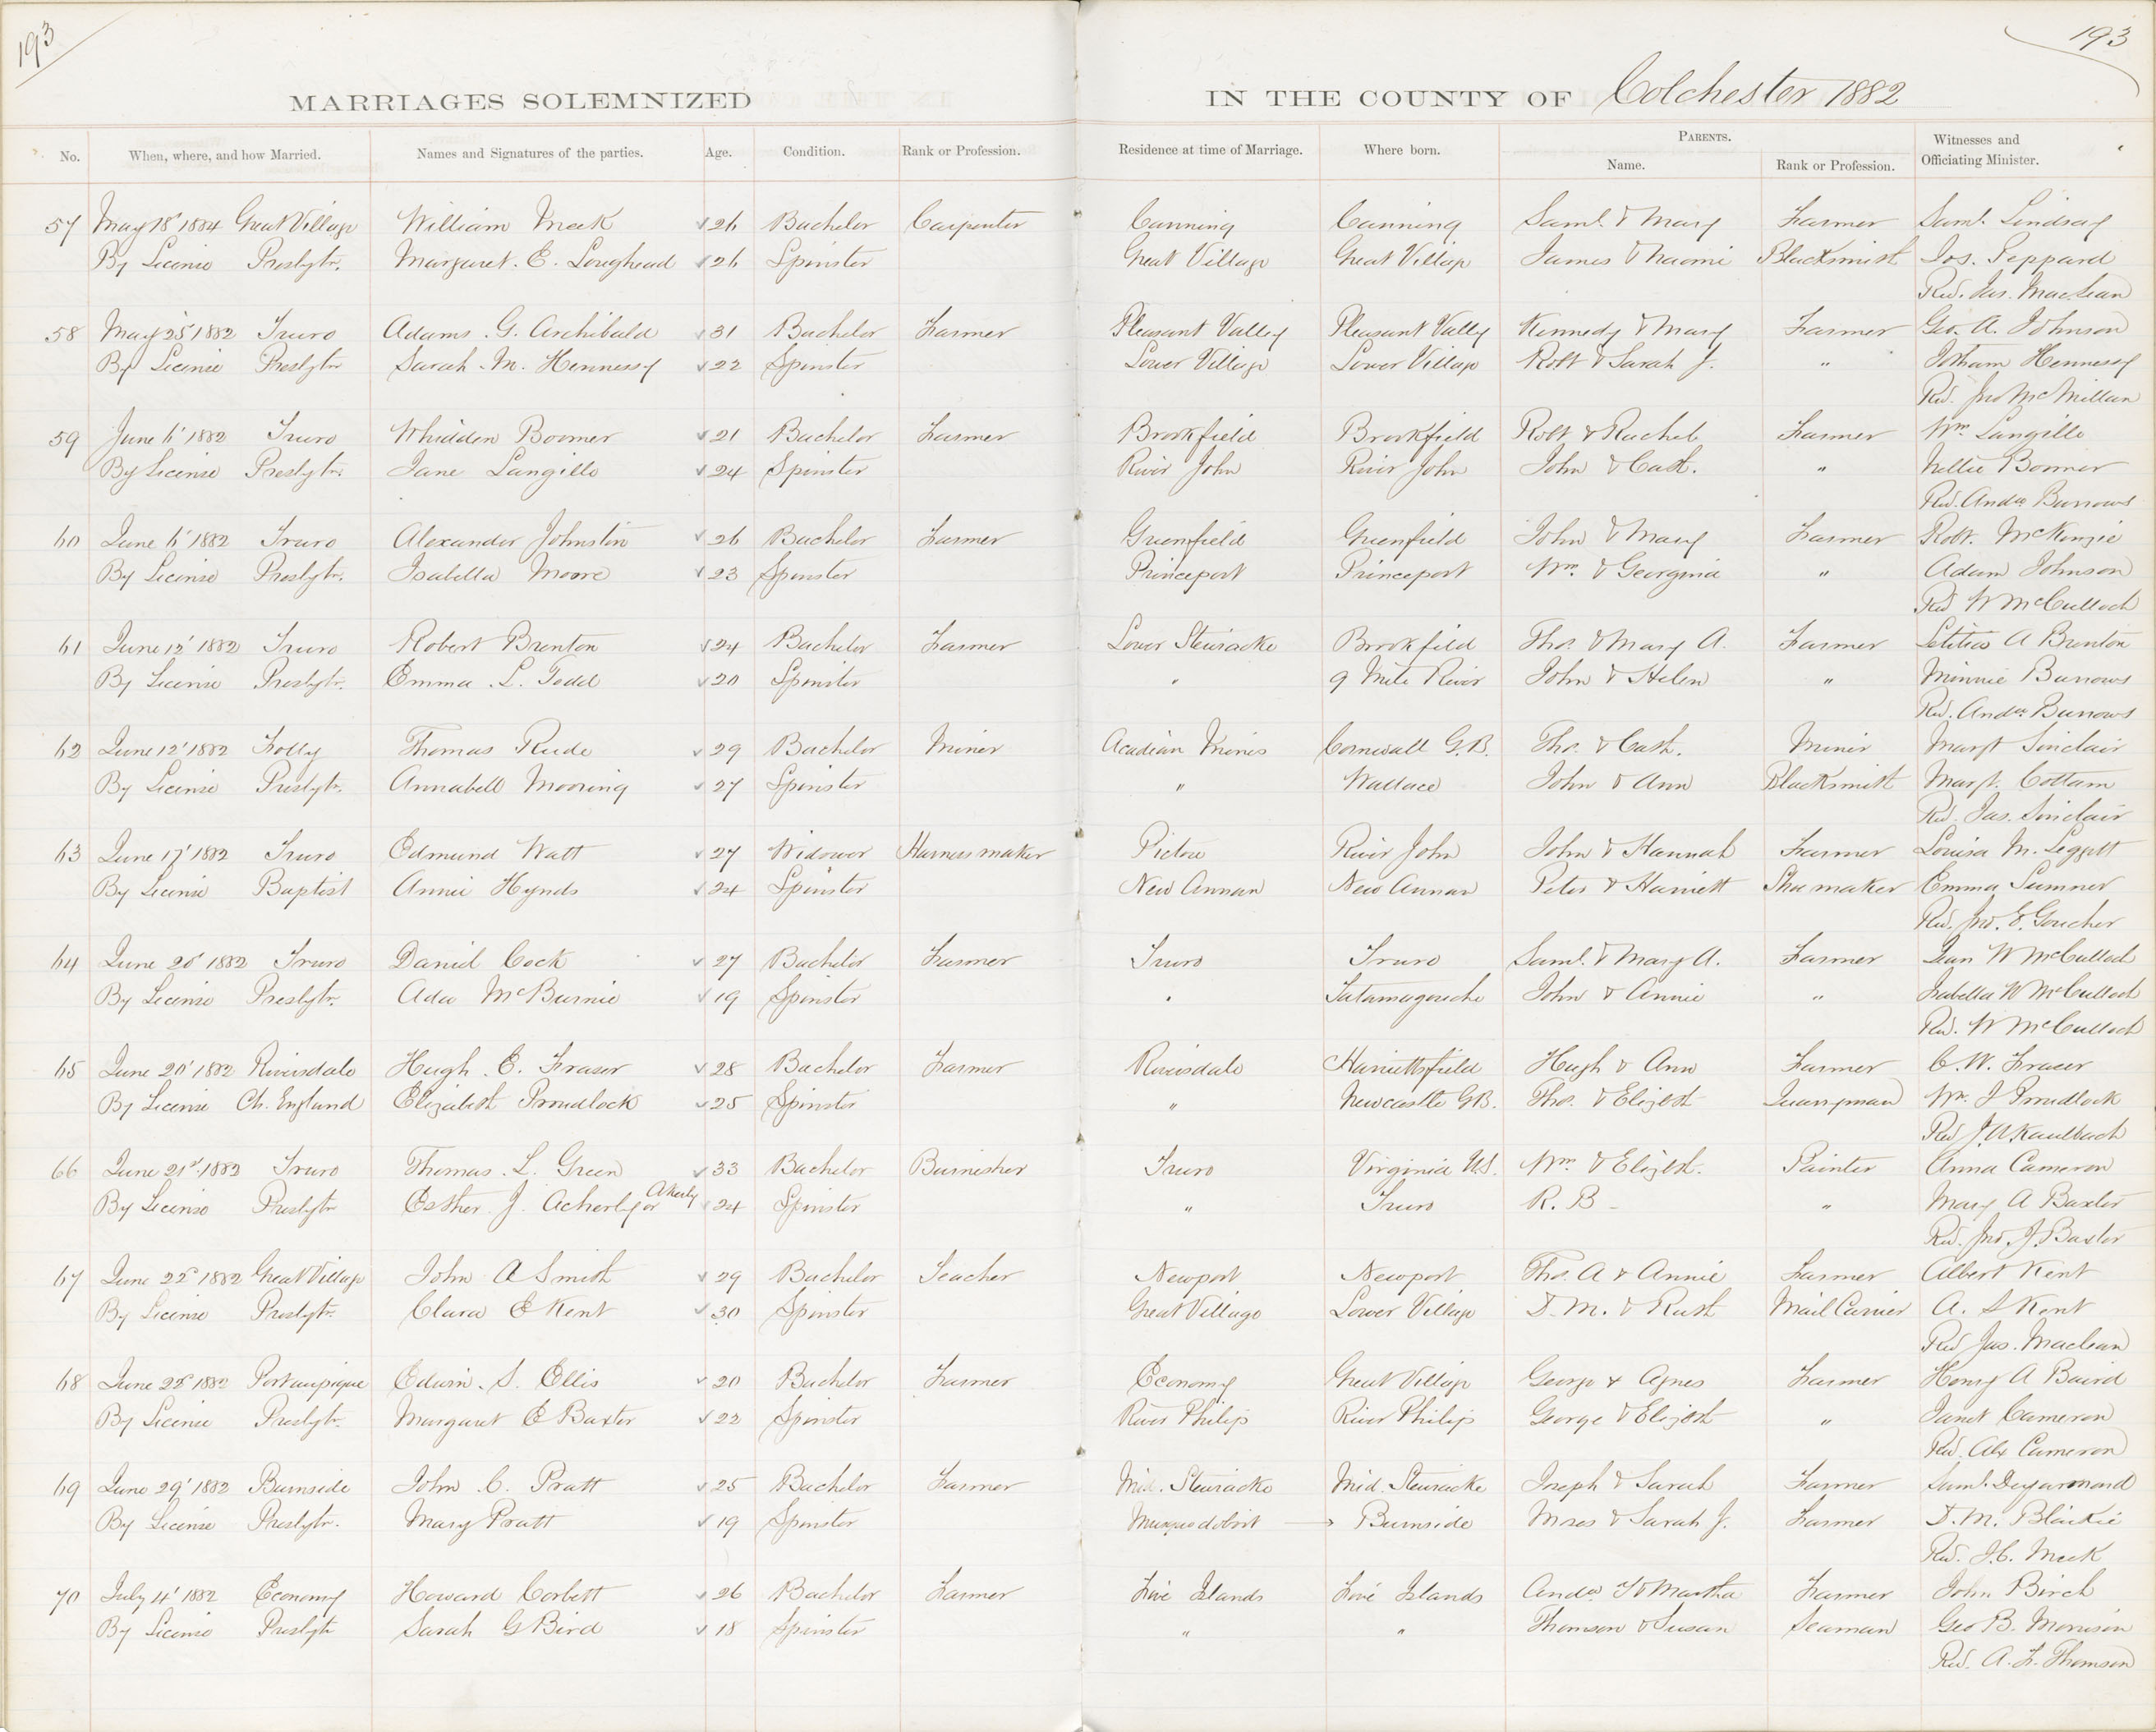 193
193
MARRIAGES SOLEMNIZED IN THE COUNTY OF Colchester 1882
No. When, where, and how Married. Names and Signatures of the parties. Age. Condition. Rank or Profession. Residence at time of Marriage. Where born. PARENTS. Name. Rank or Profession. Witnesses and Officiating Minister.
57 May 18' 1884 Great Village William Meek 26 Bachelor Carpenter Canning Canning Saml. & Mary Farmer Saml. Lindsay
By License Presbytr. Margaret. E. Loughead 26 Spinster Great Village Great Village James & Naomi Blacksmith Jos. Peppard
Rev. Jas. MacLean
58 May 25' 1882 Truro Adams. G. Archibald 31 Bachelor Farmer Pleasant Valley Pleasant Vally Kennedy & Mary Farmer Geo. A. Johnson
By License Presbytr Sarah. M. Hennessy 22 Spinster Lower Village Lower Village Robt & Sarah J. " Jotham Hennessy
Rev. Jno McMillan
59 June 6' 1882 Truro Whidden Boomer 21 Bachelor Farmer Brookfield Brookfield Robt & Rachel Farmer Wm. Langille
By License Presbytr. Jane Langille 24 Spinster River John River John John & Cath. " Nellie Boomer
Rev. Andw Burrows
60 June 6' 1882 Truro Alexander Johnston 26 Bachelor Farmer Greenfield Greenfield John & Mary Farmer Robt. McKenzie
By License Presbytr. Isabella Moore 23 Spinster Princeport Princeport Wm. & Georgina " Adam Johnson
Rev W McCulloch
61 June 12' 1882 Truro Robert Brenton 24 Bachelor Farmer Lower Stewiacke Brookfield Tho. & Mary A. Farmer Letitia A Brenton
By License Presbytr. Emma. L. Todd 20 Spinster " 9 Mile River John & Helen " Minnie Burrows
Rev. Andw Burrows
62 June 12' 1882 Folly Thomas Rude 29 Bachelor Miner Acadian Mines Cornwall G.B. Tho. & Cath. Miner Margt Sinclair
By License Presbytr. Annabell Mooring 27 Spinster " Wallace John & Ann Blacksmith Margt. Cottam
Rev. Jas. Sinclair
63 June 17' 1882 Truro Edmund Watt 27 Widower Harness maker Pictou River John John & Hannah Farmer Louisa M. Leggett
By License Baptist Annie Hynds 24 Spinster New Annan New Annan Peter & Harriett Shoemaker Emma Sumner
Rev. Jno. E. Goucher
64 June 20' 1882 Truro Daniel Cock 27 Bachelor Farmer Truro Truro Saml. & Mary A. Farmer Jean W McCulloch
By License Presbytr. Ada McBurnie 19 Spinster " Tatamagouche John & Annie " Isabella W McCulloch
Rev. W McCulloch
65 June 20' 1882 Riversdale Hugh. E. Fraser 28 Bachelor Farmer Riversdale Harriettsfield Hugh & Ann Farmer C. W. Fraser
By License Ch. England Elizabeth Proudlock 25 Spinster " Newcastle GB. Tho. & Elizbth Quarryman Wm. J Proudlock
Rev J. A. Kaulbach
66 June 21st 1882 Truro Thomas. L. Green 33 Bachelor Burnisher Truro Virginia U.S. Wm & Elizbth. Painter Anna Cameron
By License Presbytr Esther J. Acherly or Akerly 24 Spinster " Truro R. B - " Mary A Baxter
Rev. Jno. J. Baxter
67 June 22d 1882 Great Village John A Smith 29 Bachelor Teacher Newport Newport Tho. A & Annie Farmer Albert Kent
By License Presbytr. Clara E Kent 30 Spinster Great Village Lower Village D. M. & Ruth Mail Carrier A. S Kent
Rev Jas. Maclean
68 June 22d 1882 Portaupique Edwin. S. Ellis 20 Bachelor Farmer Economy Great Village George & Agnes Farmer Henry A Baird
By License Presbytr. Margaret E Baxter 22 Spinster River Philip River Philip George & Elizbth " Janet Cameron
Rev. Alx Cameron
69 June 29' 1882 Burnside John. C. Pratt 25 Bachelor Farmer Mid. Stewiacke Mid. Stewiacke Joseph & Sarah Farmer Saml. Degarmond
By License Presbytr. Mary Pratt 19 Spinster Musquodobit → Burnside Moses & Sarah J. Farmer D. M. Blaikie
Rev. J. C. Meek
70 July 4' 1882 Economy Howard Corbett 26 Bachelor Farmer Five Islands Five Islands Andw & Martha Farmer John Birch
By License Presbytr Sarah G Bird 18 Spinster " " Thomson & Susan Seaman Geo B. Morrison
Rev. A. F. Thomson